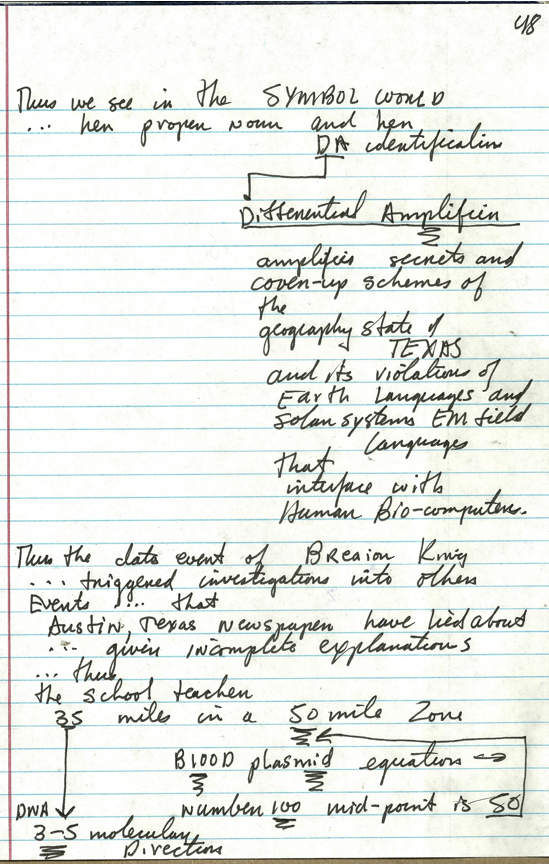 48
Thus we see in the SYMBOL WORLD
... her proper noun and her
DA identification
Differential Amplifier
amplifies secrets and
cover-up schemes of
the
geography state of
TEXAS
and its violations of
Earth Languages and
Solar systems EM field
Languages
that
interface with
Human Bio-computers.
Thus the date event of Breaion King
... triggered investigations into others
Events ... that
Austin, Texas newspaper have lied about
... given incomplete explanations
... thus
the school teacher
35 miles in a 50 mile Zone
BlOOD plasmid equation →
number 100 mid-point is 50
DNA
3-5 molecular
Direction